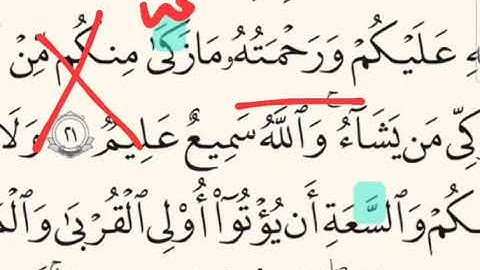 عَلَيْكُمْ وَرَحْمَتُهُۥ مَا زَكَىٰ مِنكُم مِّنْ
مَن يَشَآءُ وَٱللَّهُ سَمِيعٌ عَلِيمٌ ٢١ وَلَا
وَٱلسَّعَةِ أَن يُؤْتُوٓا۟ أُو۟لِى ٱلْقُرْبَىٰ